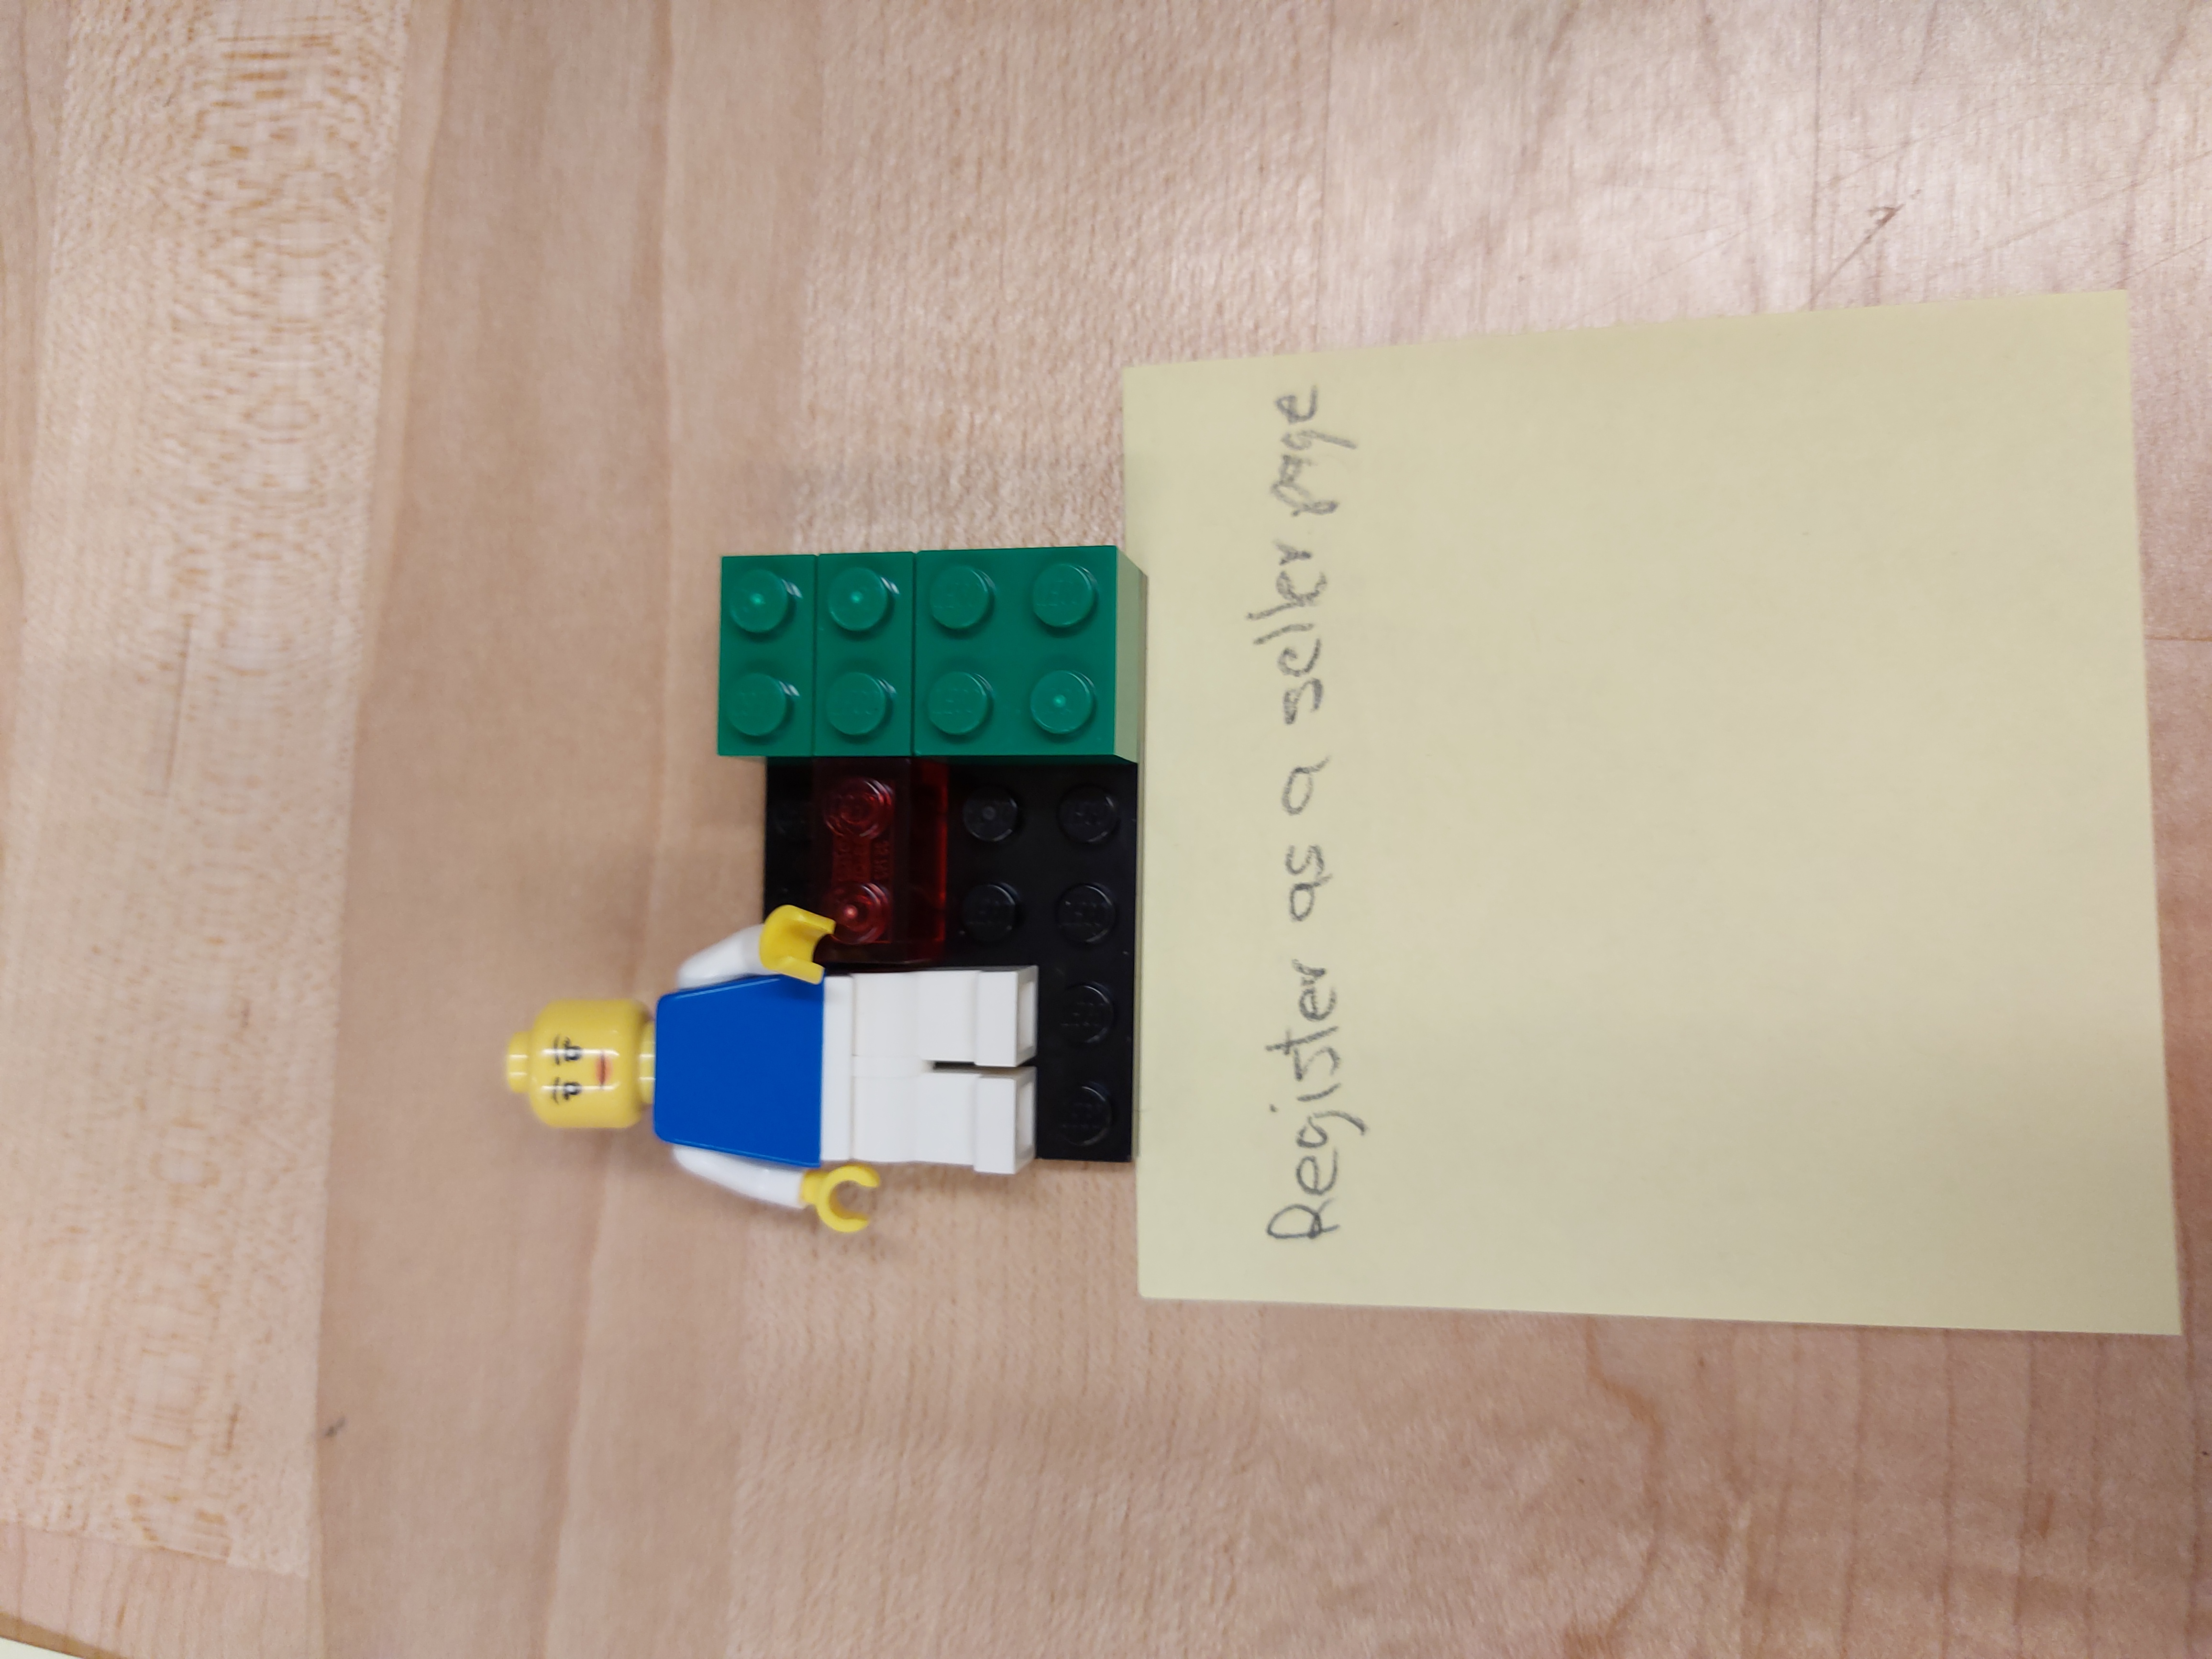 Register as a seller page